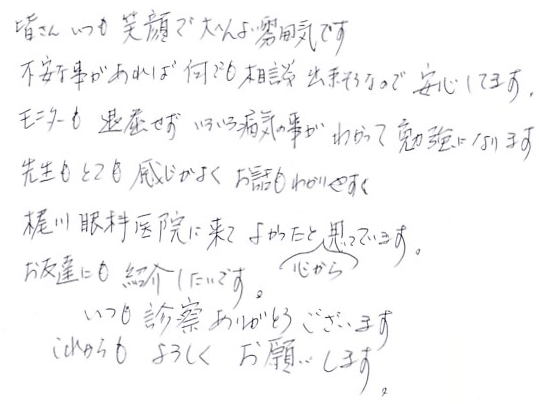 皆さん いつも 笑顔で 大へんよい雰囲気です
不安な事があれば 何でも 相談 出来そうなので 安心してます。
モニターも 退屈せず いろいろ病気の事が わかって 勉強になります
先生も とても 感じがよく お話も わかりやすく
梶川 眼科医院に来て よかったと 思っています。
心から
お友達にも 紹介したいです。
いつも 診察 ありがとう ございます
これからも よろしく お願いします。